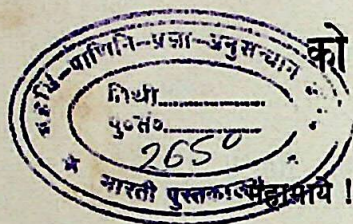 को
महर्षि-पाणिनि-प्रज्ञा-अनुसन्धान
तिथी..............
पु०सं०..............
2650
भारती पुस्तकालय
महामाये !